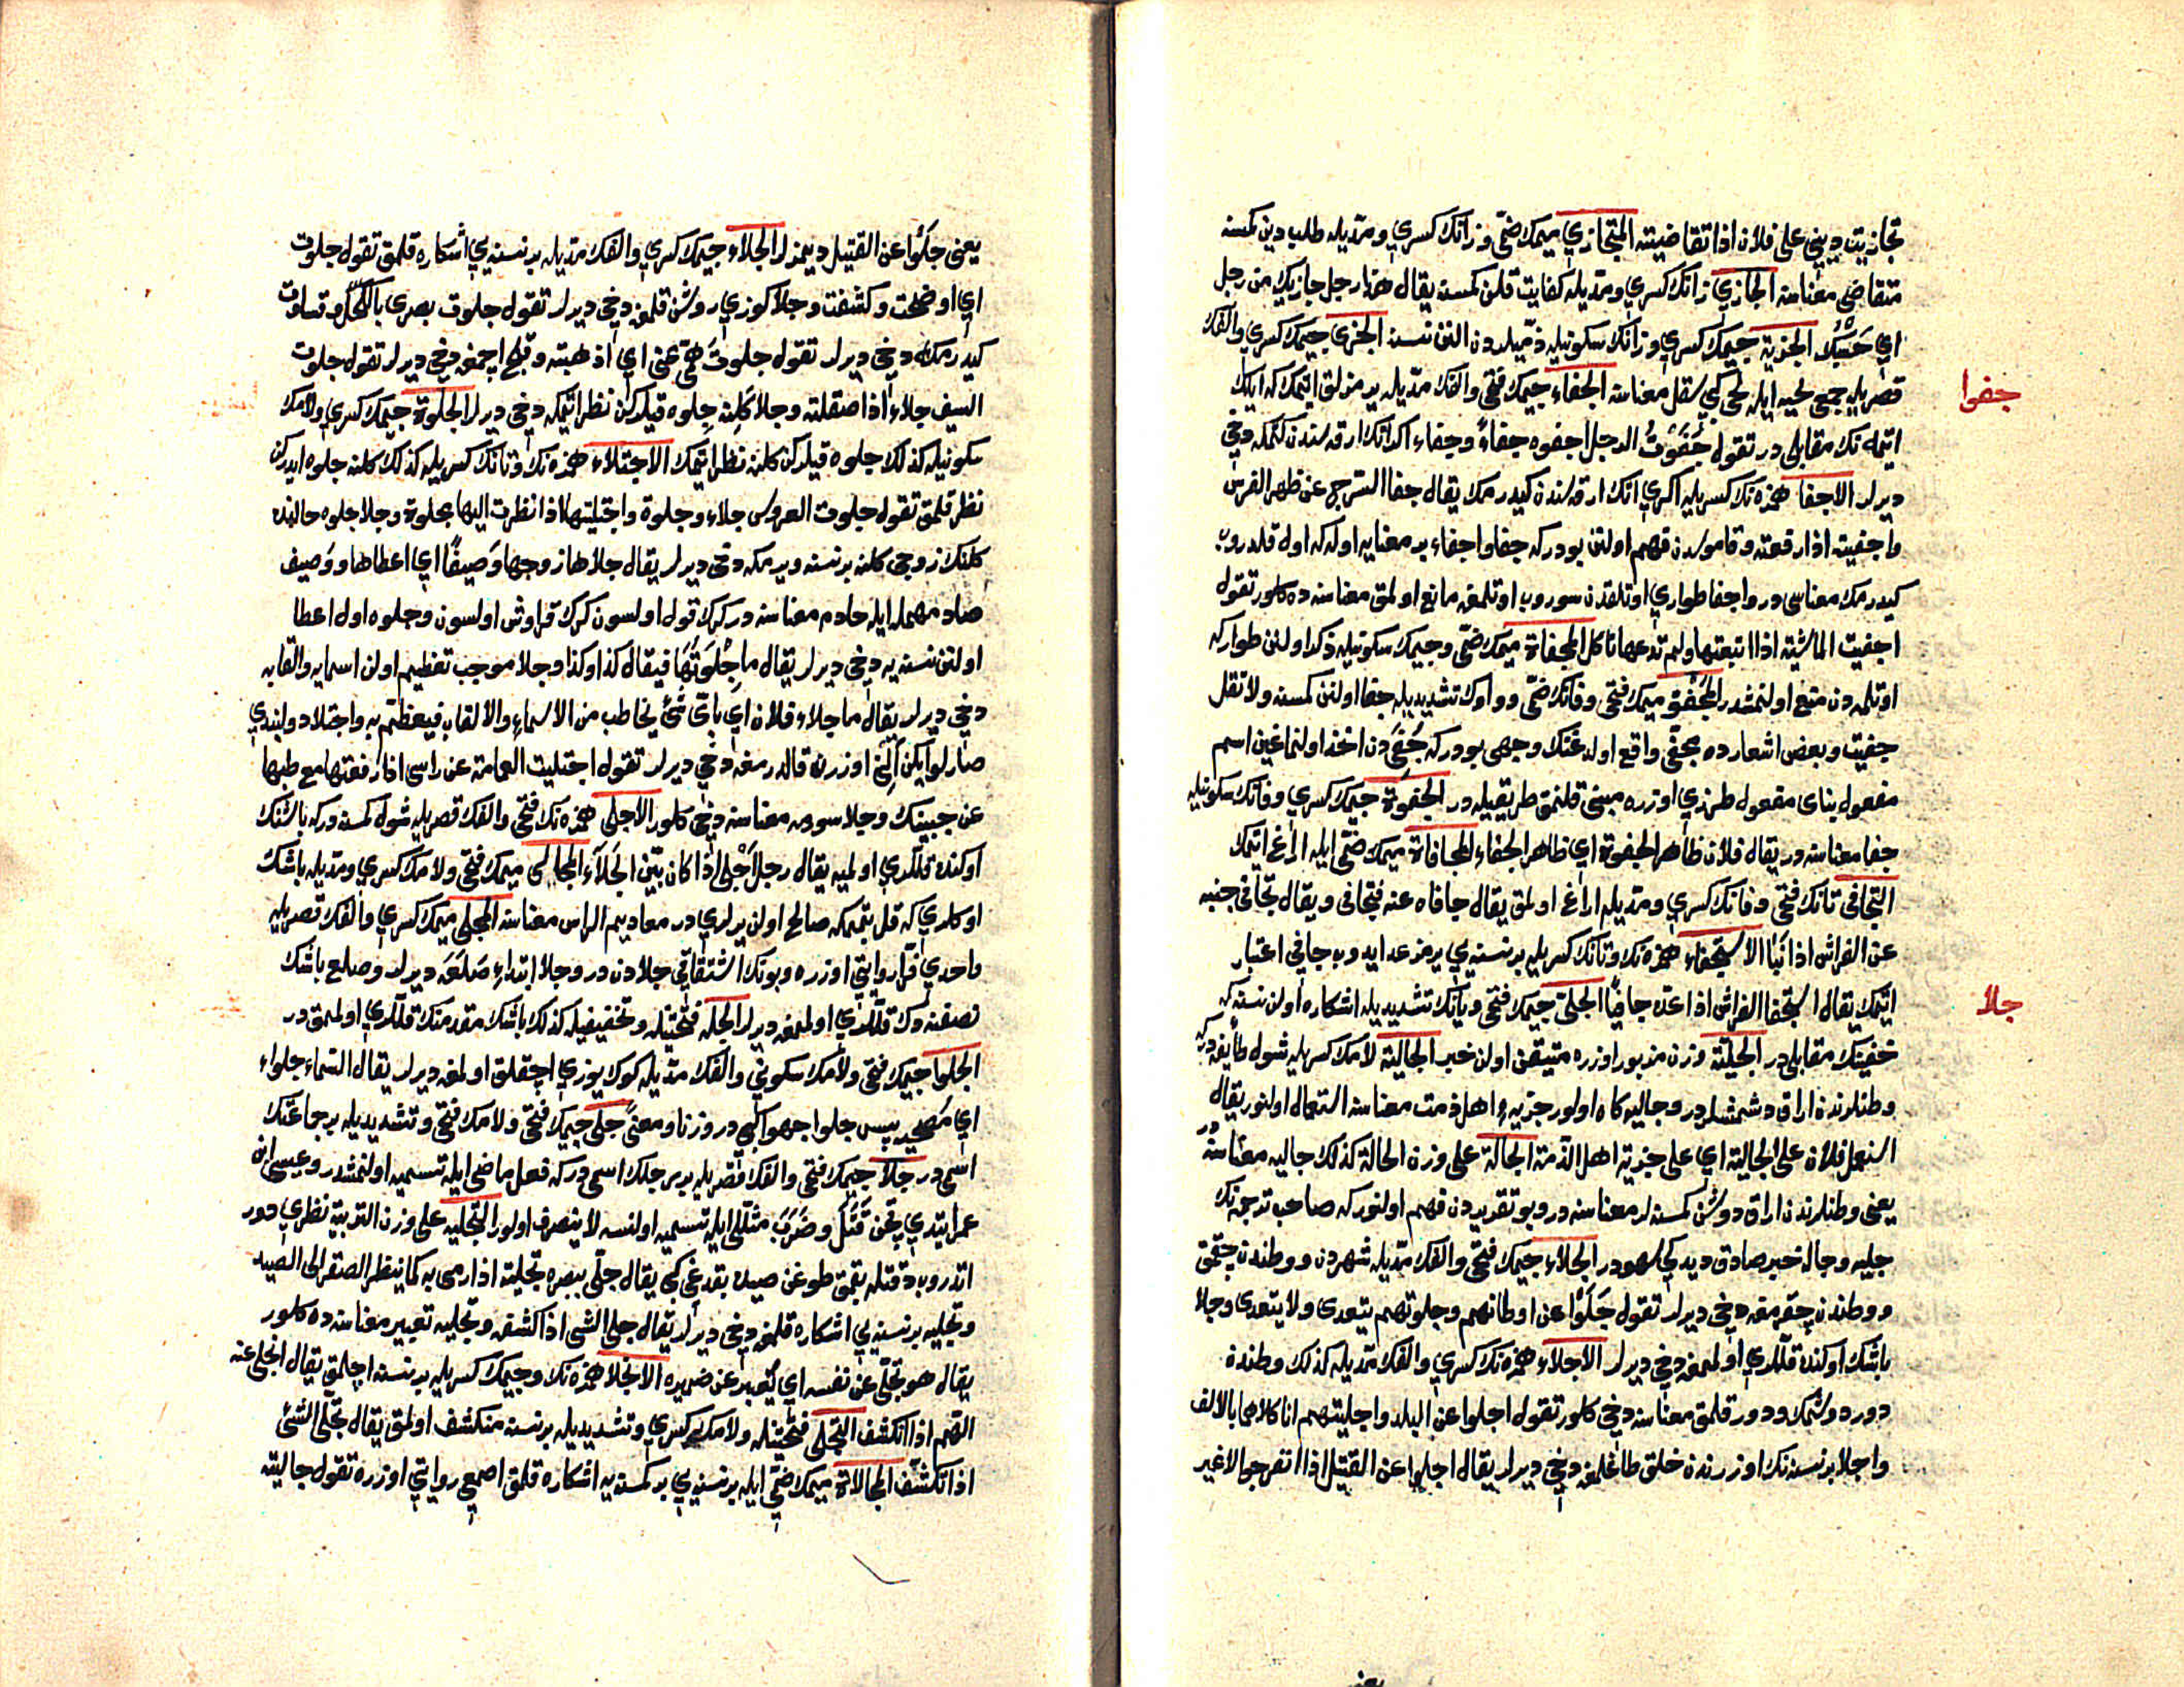 تجازيت ديني على فلان اذا تقاضيته المتجازي ميمك ضمى وزانك كسري ومديله طلب دين كمسنه
متقاضى معناسنه الجازي زانك كسري ومديله كفايت قلن كمسنه يقال هذا رجل جازيك من رجل
اي حسبك الجزية جيمك كسري وزانك سكونيله ذميلردن النن نسنه الجزى جيمك كسري والفك
قصريله جمعى لحيه ايله لحى كبي نقل معناسنه الجفاء جيمك فتحى والفك مديله يرمزلق اتمك كه ايلك
جفوا
اتمه نك مقابلى در تقول جفوت الرجل اجفوه جفاءً وجفاء اكرانك ارقه سندن كتمكه دخى
ديرلر الاجفا همزه نك كسريله اكري اتك ارقه سندن كيدرمك يقال جفا السرج عن ظهر الفرس
واجفيته اذا رفعته وقاموسدن فهم اولنن بودركه جفا واجفاء بر معنايه اوله كه اول قلدروب
كيدرمك معناسى در واجفا طواري اوتلقدن سوروب اوتلمغه مانع اولمق معناسنه ده كلور تقول
اجفيت الماشية اذا اتبعتها ولم تدعها تاكل المجفاة ميمك ضمى وجيمك سكونيله ذكر اولنن طواركه
اوتلمه دن منع اولنمشدر المجفو ميمك فتحى وفانك ضمى وواوك تشديديله جفا اولنن كمسنه ولا تقل
جفيت وبعض اشعارده مجفى واقع اولدغنك وجهى بودركه جفى دن اخذ اولنماغين اسم
مفعول بناى مفعول طرزي اوزره مبنى قلنمق طريقيله در الجفوة جيمك كسري وفانك سكونيله
جفا معناسنه در يقال فلان ظاهر الجفوة اي ظاهر الجفاء المجافاة ميمك ضمى ايله ايراغ اتمك
التجافى تانك فتحى وفانك كسري ومديله ايراغ اولمق يقال جافاه عنه فتجافى ويقال تجافى جنبه
عن الفراش اذا نبا الاستجفاء همزه نك وتانك كسريله بر نسنه يي يرمز عد ايدوب جافي اعتبار
اتمك يقال استجفا الفراش اذا عده جافيا الجلى جيمك فتحى ويانك تشديديله اشكاره اولن نسنه كه
جلا
خفينك مقابلى در الجلية وزن مزبور اوزره متيقن اولن خبر الجالية لامك كسريله شول طائفه دركه
وطنلرندن ايراق دوشمشلردر وجاليه كاه اولور جزيهء اهل ذمت معناسنه استعمال اولنور يقال
استعمل فلان على الجالية اي على جزية اهل الذمة الجالة على وزن الحالة كذلك جاليه معناسنه در
يعنى وطنلرندن ايراق دوشن كمسنه لر معناسنه در وبو تقريردن فهم اولنوركه صاحب ترجمه نك
جليه وجاله خبر صادق ديديكى سهودر الجلاء جيمك فتحى والفك مديله شهردن ووطندن چقمق
ووطندن چقرمغه دخى ديرلر تقول جلوا عن اوطانهم وجلوتهم يتعدى ولا يتعدى وجلا
باشك اوكنده قللري اولمامغه دخى ديرلر الاجلاء همزه نك كسري والفك مديله كذلك وطندن
دور دوشمك ودور قلمق معناسنه دخى كلور تقول اجلوا عن البلد واجليتهم انا كلاهما بالالف
واجلا بر نسنه نك اوزرندن خلق طاغلمغه دخى ديرلر يقال اجلوا عن القتيل اذا انفرجوا لا غير
يعنى جلوا عن القتيل ديمزلر الجلاء جيمك كسري والفك مديله بر نسنه يي اشكاره قلمق تقول جلوت
اي اوضحت وكشفت وجلا كوزي روشن قلمغه دخى ديرلر تقول جلوت بصرى بالكحل وقساوت
كيدرمكه دخى ديرلر تقول جلوت همى عنى اي اذهبته وقلج اچمغه دخى ديرلر تقول جلوت
السيف جلاء اذا صقلته وجلا كلينه جلوه قيلركن نظر اتمكه دخى ديرلر الجلوة جيمك كسري ولامك
سكونيله كذلك جلوه قيلركن كلينه نظر اتمك الاجتلاء همزه نك وتانك كسريله كذلك كلينه جلوه ايدركن
نظر قلمق تقول جلوت العروس جلاء وجلوة واجتليتها اذا نظرت اليها مجلوة وجلا جلوه حالنده
كلينك زوجى كلينه بر نسنه ويرمكه دخى ديرلر يقال جلاها زوجها وصيفًا اي اعطاها ووصيف
صاد مهمله ايله خادم معناسنه در كرك قول اولسون كرك قراوش اولسون وجلوه اول اعطا
اولنن نسنه يه دخى ديرلر يقال ما جلوتها فيقال كذا وكذا وجلا موجب تعظيم اولن اسمايه والقابه
دخى ديرلر يقال ما جلاء فلان اي باى شئ يخاطب من الاسماء والالقاب فيعظم به واجتلا دولبندي
صارلو ايكن الن اوزرندن قالدرمغه دخى ديرلر تقول اجتليت العمامة عن راسى اذا رفعتها مع طيها
عن جبينك وجلا سورمه معناسنه دخى كلور الاجلى همزه نك فتحى والفك قصريله شول كمسنه دركه باشنك
اوكنده قللري اولميه يقال رجل اجلى اذا كان بين الجلا المجالى ميمك فتحى ولامك كسري ومديله باشك
اوكلري كه قل بتمكه صالح اولن يرلري در مقاديم الراس معناسنه المجلى ميمك كسري والفك قصريله
واحدي فرا روايتى اوزره وبونك اشتقاقى جلادن در وجلا ابتداء صلعه ديرلر وصلع باشك
نصفنه دك قللري اولمامغه ديرلر الجله فتحتيله وتخفيفيله كذلك باشك مقدمنك قللري اولمامق در
الجلوا جيمك فتحى ولامك سكونى والفك مديله كوك يوزي اچقلق اولمغه ديرلر يقال السماء جلواء
اي مصحية پس جلوا جهوا كبي در وزنا ومعنًى جلى جيمك فتحى ولامك فتحى وتشديديله بر جماعتك
اسمى در جلا جيمك فتحى والفك قصريله بر رجلك اسمى دركه فعل ماضى ايله تسميه اولنمشدر وعيسى ابن
عمر ايتدي پچن قتل وضرب مثللى ايله تسميه اولنسه لا ينصرف اولور التجليه على وزن التربية نظري دور
اتدروب دقتله بقمق طوغن صيده بقدغى كبي يقال جلى ببصره تجلية اذا رمى به كما ينظر الصقر الى الصيد
وتجليه بر نسنه يي اشكاره قلمغه دخى ديرلر يقال جلى الشى اذا كشفه وتجليه تعبير معناسنه ده كلور
يقال هو يجلى عن نفسه اي يعبر عن ضميره الانجلا همزه نك وجيمك كسريله بر نسنه اچلمق يقال انجلى عنه
الهم اذا انكشف التجلى فتحتيله ولامك كسري وتشديديله بر نسنه منكشف اولمق يقال تجلى الشئ
اذا تكشف المجالاة ميمك ضمى ايله بر نسنه يي بر كمسنه يه اشكاره قلمق اصمعى روايتى اوزره تقول جاليته